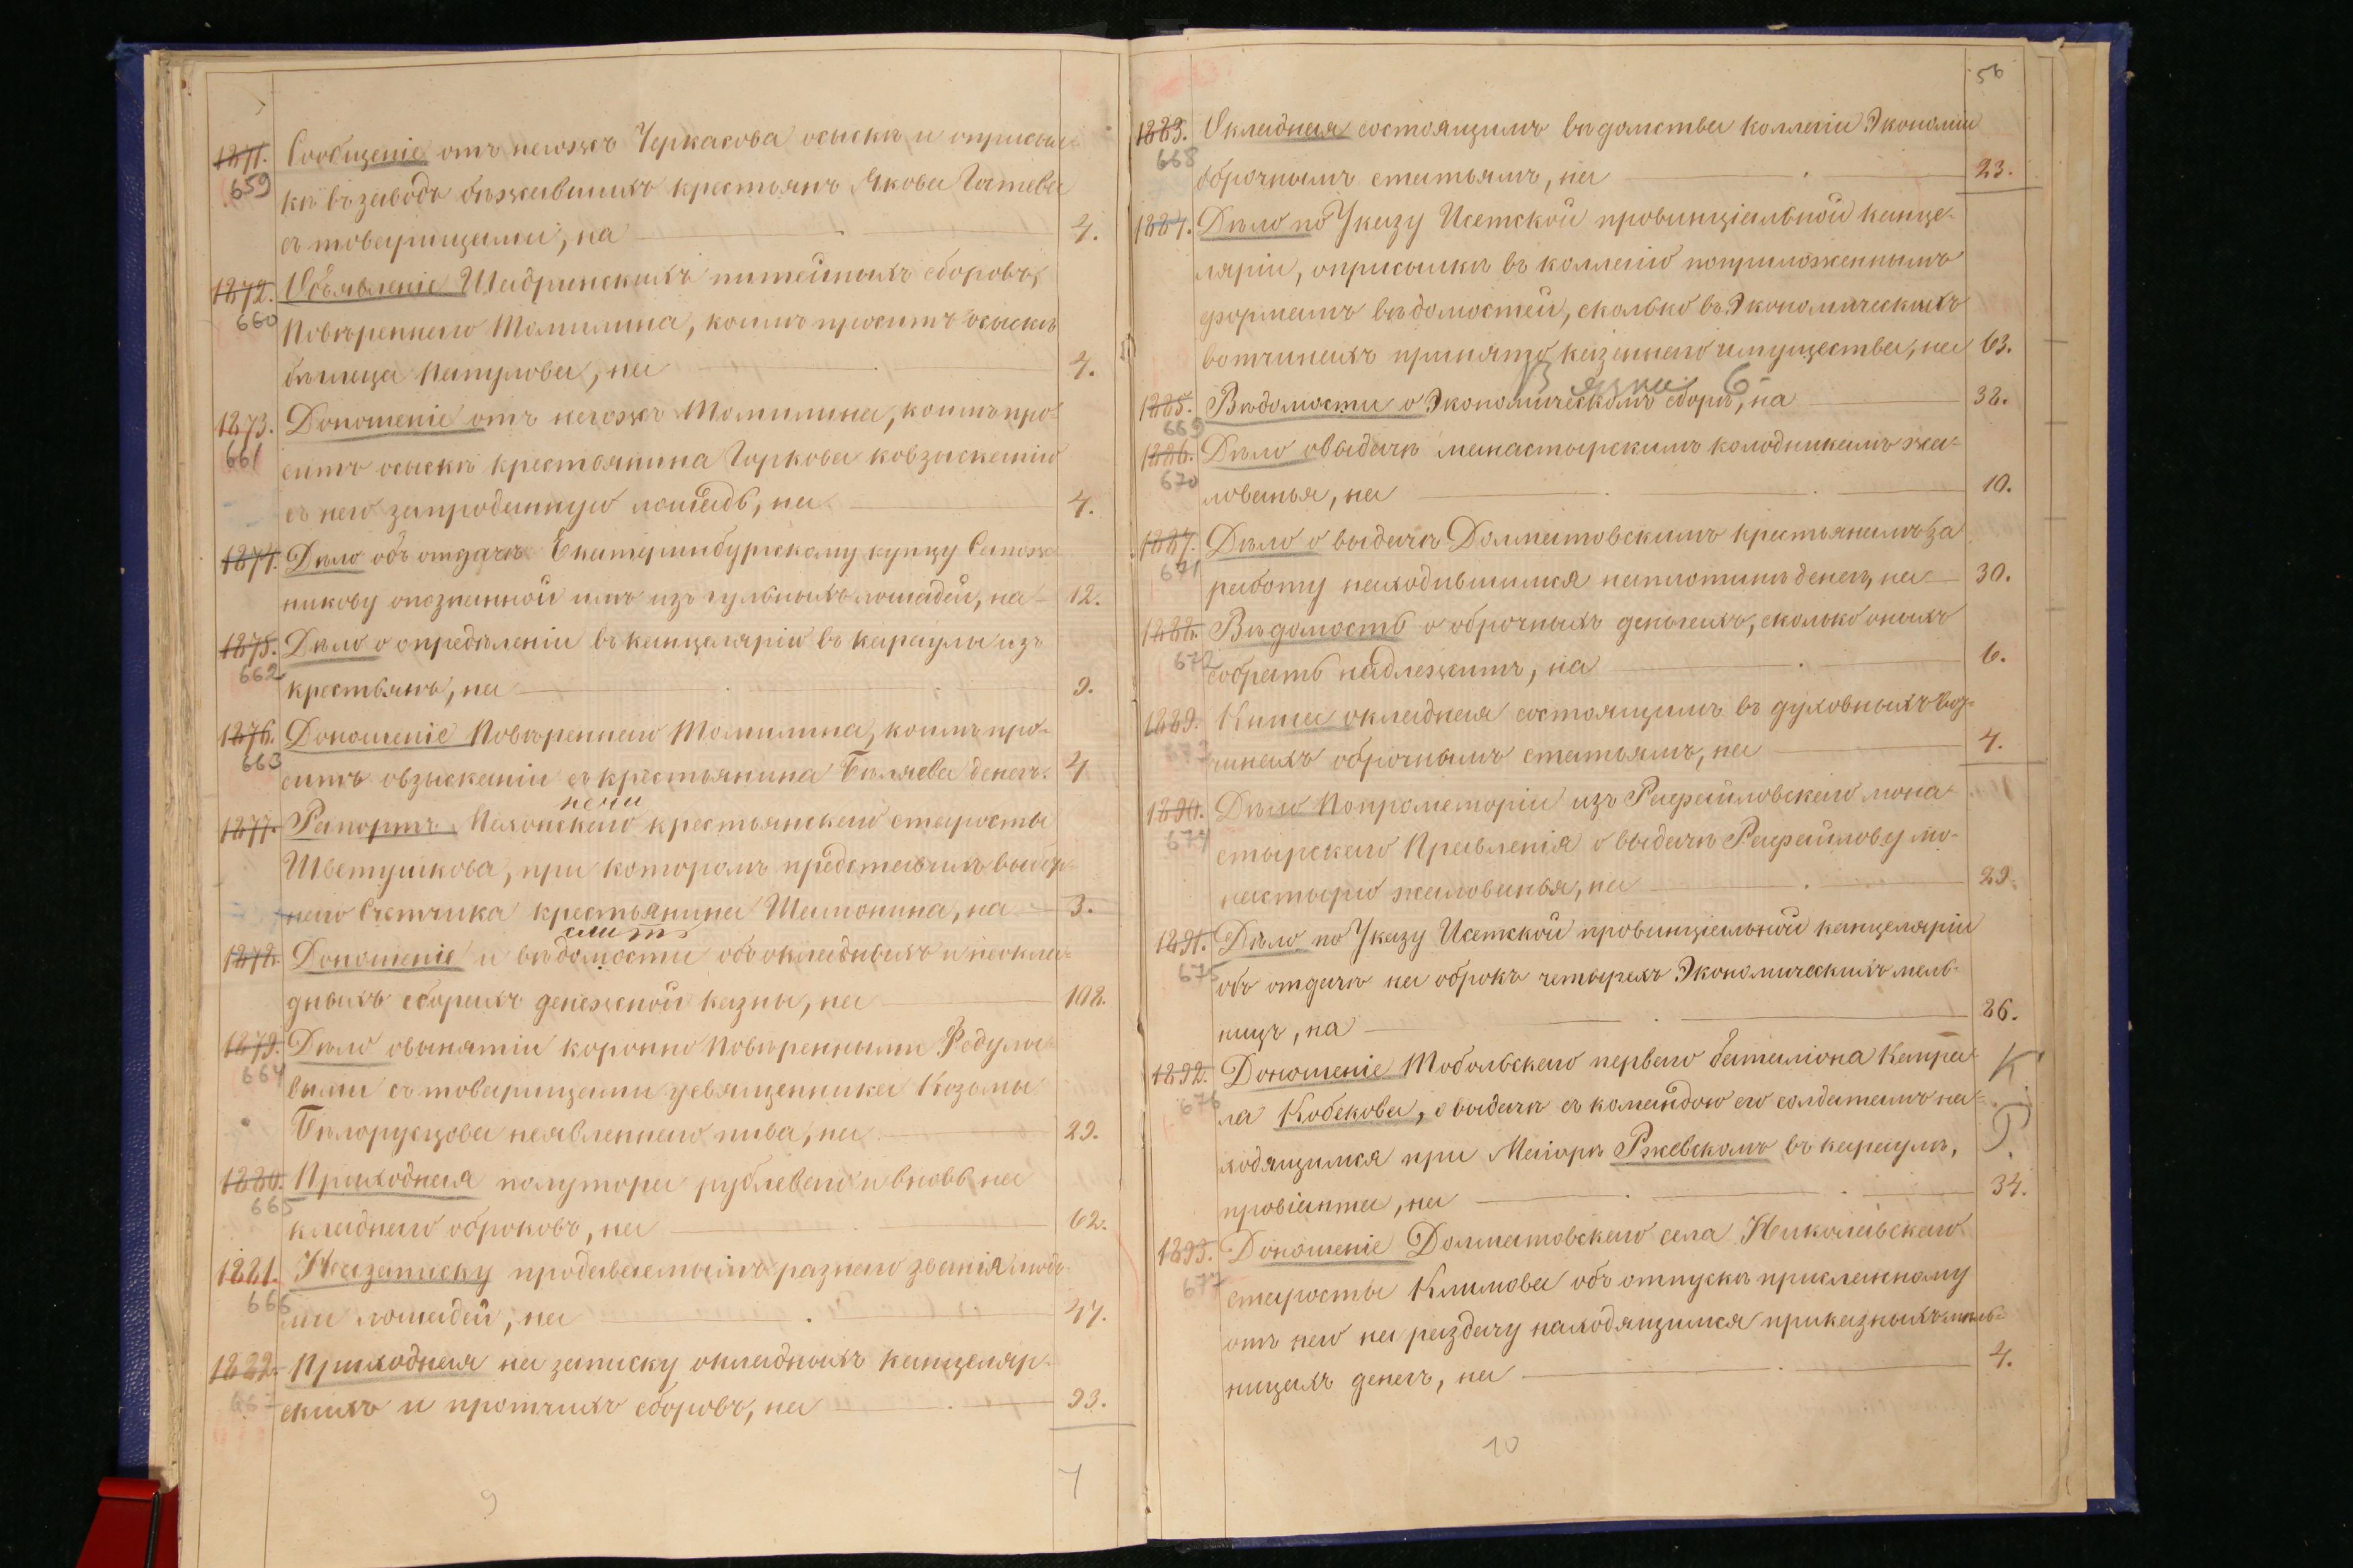 1871. Сообщеніе отъ негожъ Черкасова осыскѣ и оприсыл-
659
кѣ въ заводъ бѣжавшихъ крестьянъ Якова Гатева
съ товарищами, на 4.
1872. Объявленіе Шадринскихъ питейныхъ сборовъ,
660
Повѣреннаго Томилина, коимъ проситъ осыскѣ
бѣглеца Патулова, на 4.
1873. Доношеніе отъ негожъ Томилина, коимъ про-
661
ситъ осыскѣ крестьянина Горкова ковзысканію
съ него запроданную лошадь, на 4.
1874. Дѣло объ отдачѣ Екатеринбургскому купцу Сапож-
никову опознанной имъ изъ гульныхъ лошадей, на 12.
1875. Дѣло о опредѣленіи въ канцелярію въ караулы изъ
662
крестьянъ, на 9.
1876. Доношеніе Повѣреннаго Томилина, коимъ про-
663
ситъ овзысканіи съ крестьянина Бѣляева денегъ. 4
1877. Рапортъ Маконскаго крестьянскаго старосты
Шветушкова, при которомъ представилъ выбор-
наго Счетчика крестьянина Шамонина, на 3.
1878. Доношеніе и вѣдомости объ окладныхъ и неокла-
дныхъ сборахъ денежной казны, на 108.
1879. Дѣло овынятіи коронно Повѣренными Федуло-
664
выми съ товарищами усвященника Козьмы
Бѣлорусцова неявленнаго пива, на 29.
1880. Приходная полутора рублеваго и вновь на
665
кладнаго оброковъ, на 62.
1881. На записку продаваемыимъ разнаго званія людь-
666
ми лошадей, на 47.
1882. Приходная на записку окладныхъ канцеляр-
скихъ и протчихъ сборовъ, на 93.
7
9
56
1883. Окладная состоящимъ вѣдомства коллегіи Экономіи
668
оброчнымъ статьямъ, на 23.
1884. Дѣло по Указу Исетской провинціальной канце-
ляріи, оприсылкѣ въ коллегію поприложеннымъ
формамъ вѣдомостей, сколько въ Экономическихъ
вотчинахъ принято казеннаго имущества, на 63.
1885. Вѣдомости о Экономическомъ сборѣ, на 38.
669
1886. Дѣло овыдачѣ манастырскимъ колодникамъ жа-
670
лованья, на 10.
1887. Дѣло о выдачѣ Долматовскимъ крестьянамъ за
671
работу находившимся наплотинѣ денегъ, на 30.
1888. Вѣдомость о оброчныхъ деньгахъ, сколько оныхъ
672
собрать надлежитъ, на 6.
1889. Книга окладная состоящимъ въ духовныхъ вод-
673
чинахъ оброчнымъ статьямъ, на 4.
1890. Дѣло Попромеморіи изъ Рафайловскаго мона-
674
стырскаго Правленія о выдачѣ Рафайлову мо-
настырю жалованья, на 29.
1891. Дѣло по Указу Исетской провинціальной канцеляріи
675
объ отдачѣ на оброкъ четырехъ Экономическихъ мель-
ницъ, на 26.
1892. Доношеніе Тобольскаго перваго баталіона Капра-
676
ла Кобекова, о выдачѣ съ командою его солдатамъ на-
ходящимся при Маіорѣ Ржевскомъ въ караулѣ,
провіанта, на 34.
1893. Доношеніе Долматовскаго села Николаевскаго
677
старосты Климова объ отпускѣ присланному
отъ него на раздачу находящимся приказныхъ мель-
ницахъ денегъ, на 4.
10